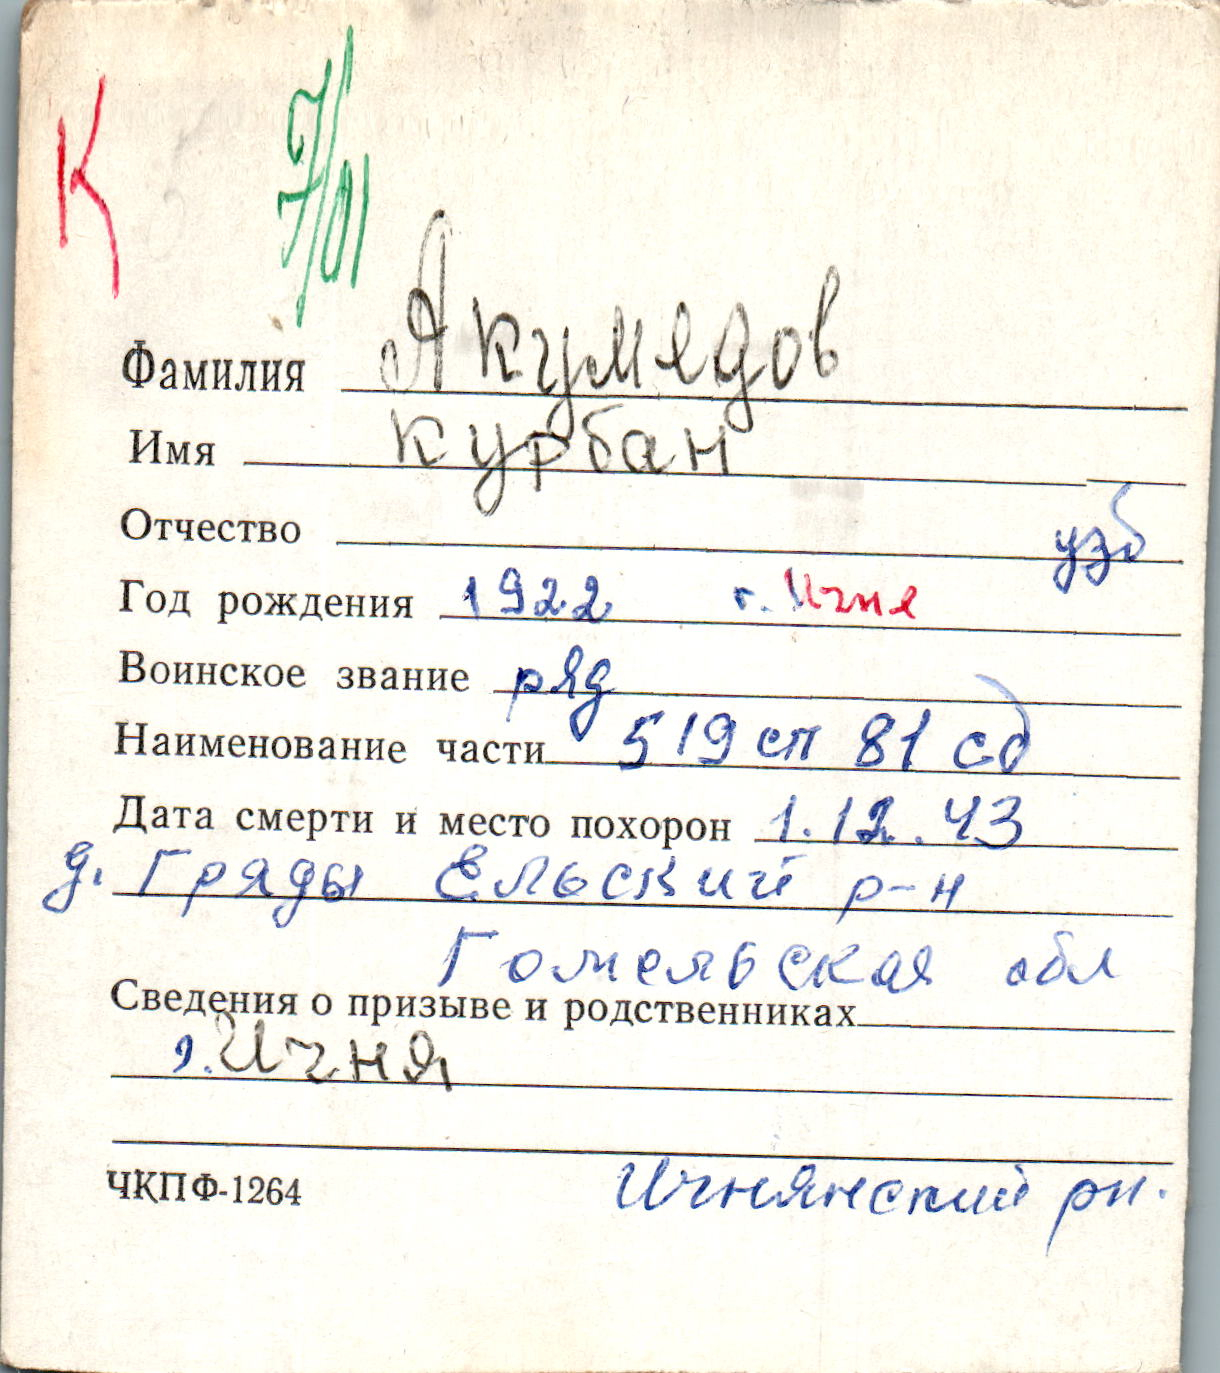 К 7/01
Фамилия Якумядов
Имя Курбан
Отчество узб
Год рождения 1922 г. Ичня
Воинское звание ряд
Наименование части 519 сп 81 сд
Дата смерти и место похорон 1.12.43
д. Гряды Ельский р-н
Гомельская обл
Сведения о призыве и родственниках
г. Ичня
ЧКПФ-1264 Ичнянский рн.